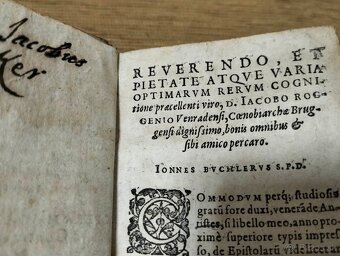 Jacobus
REVERENDO, ET
PIETATE ATQVE VARIA
OPTIMARVM RERVM COGNI
tione præcellenti viro, D. IACOBO ROG
GENIO Venradensi, Cœnobiarchæ Brug
gensi dignissimo, bonis omnibus &
sibi amico percaro.
IOHNNES BVCHLERVS S.P.D.
COMMODVM perq; studiosis
gratū fore duxi, venerāde An
tistes, si libello meo, anno pro
ximè superiore typis impres
so, de Epistolarū videlicet